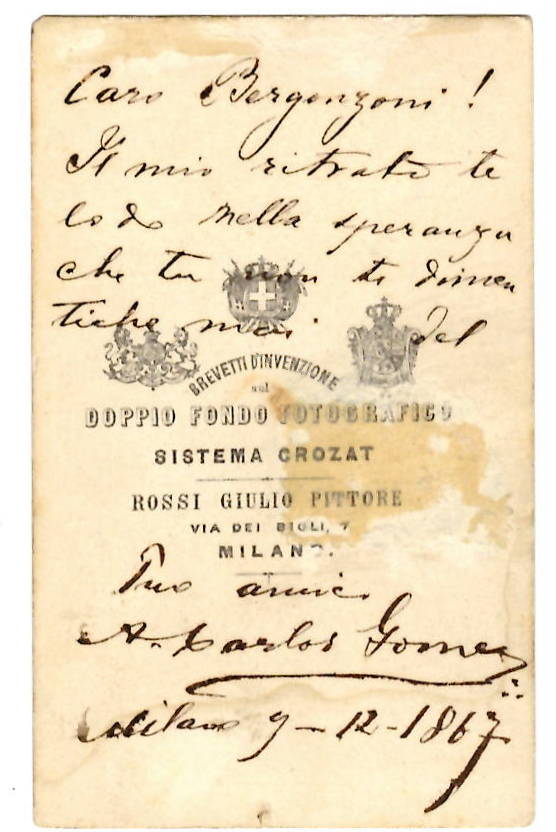 Caro Bergonzoni!
Il mio ritrato te
lo dò nella speranza
che tu non ti dimen
tiche mai. del
BREVETTI D'INVENZIONE
sul
DOPPIO FONDO FOTOGRAFICO
SISTEMA CROZAT
ROSSI GIULIO PITTORE
VIA DEI BIGLI, 7
MILANO.
Tuo amico
A. Carlos Gomes
Milano 9-12-1867